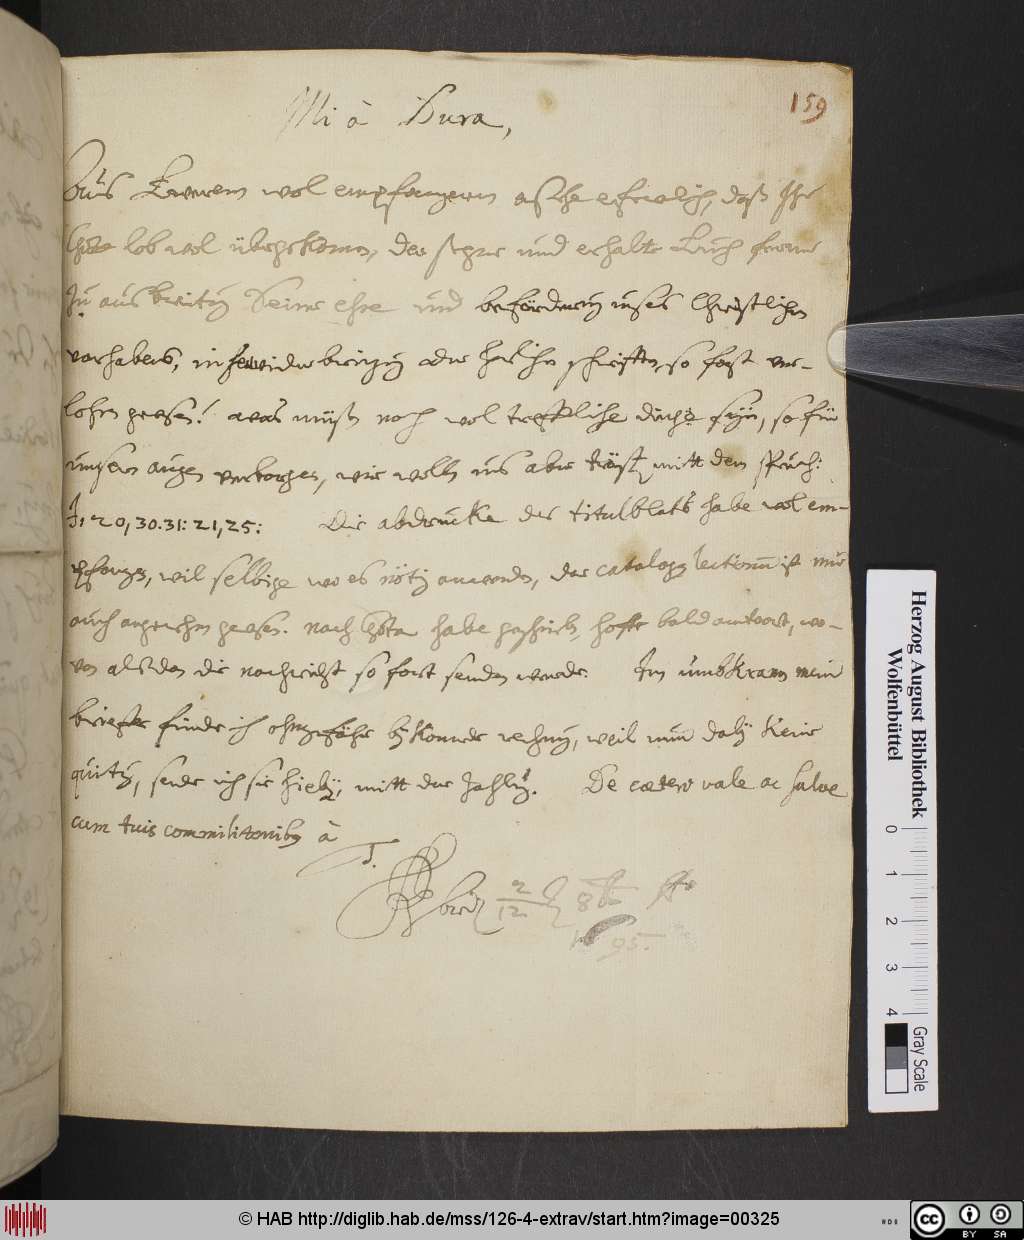 159
Mi à Bura,
Aus Ewerem wol empfangenen ersehe erfrewlich, daß Ihr
lob wol überkomen, der segne und erhalte Euch ferner
Zu ausbreitung Seiner ehre und beförderung unsers Christlichen
vorhabens, in herwiderbringung der schrifften, so fast ver-
lohren gewesen! was müßen noch wol treffliche dinge seyn, so für
unsern augen verborgen, wir wollen uns aber trösten mitt dem spruch:
J: 20, 30. 31: 21, 25: Die abdrucke des titulblats habe wol em-
pfangen, wil selbige wo es nötig anwenden, der catalogus lectionum ist mir
auch angenehm gewesen. nach habe geschrieben, hoffe bald antwort, wo-
von alsdan die nachricht so fort senden werde. Im umbkramen meiner
brieffe finde ich ohngefähr bykomende rechnung, weil nun dabey keine
quitung, sende ich sie hieby, mitt der zahlung. De cætero vale ac salve
cum tuis commilitonibus à
T.
2/12 8
95.
Herzog August Bibliothek
Wolfenbüttel
0 1 2 3 4
Gray Scale
© HAB http://diglib.hab.de/mss/126-4-extrav/start.htm?image=00325
cc BY SA